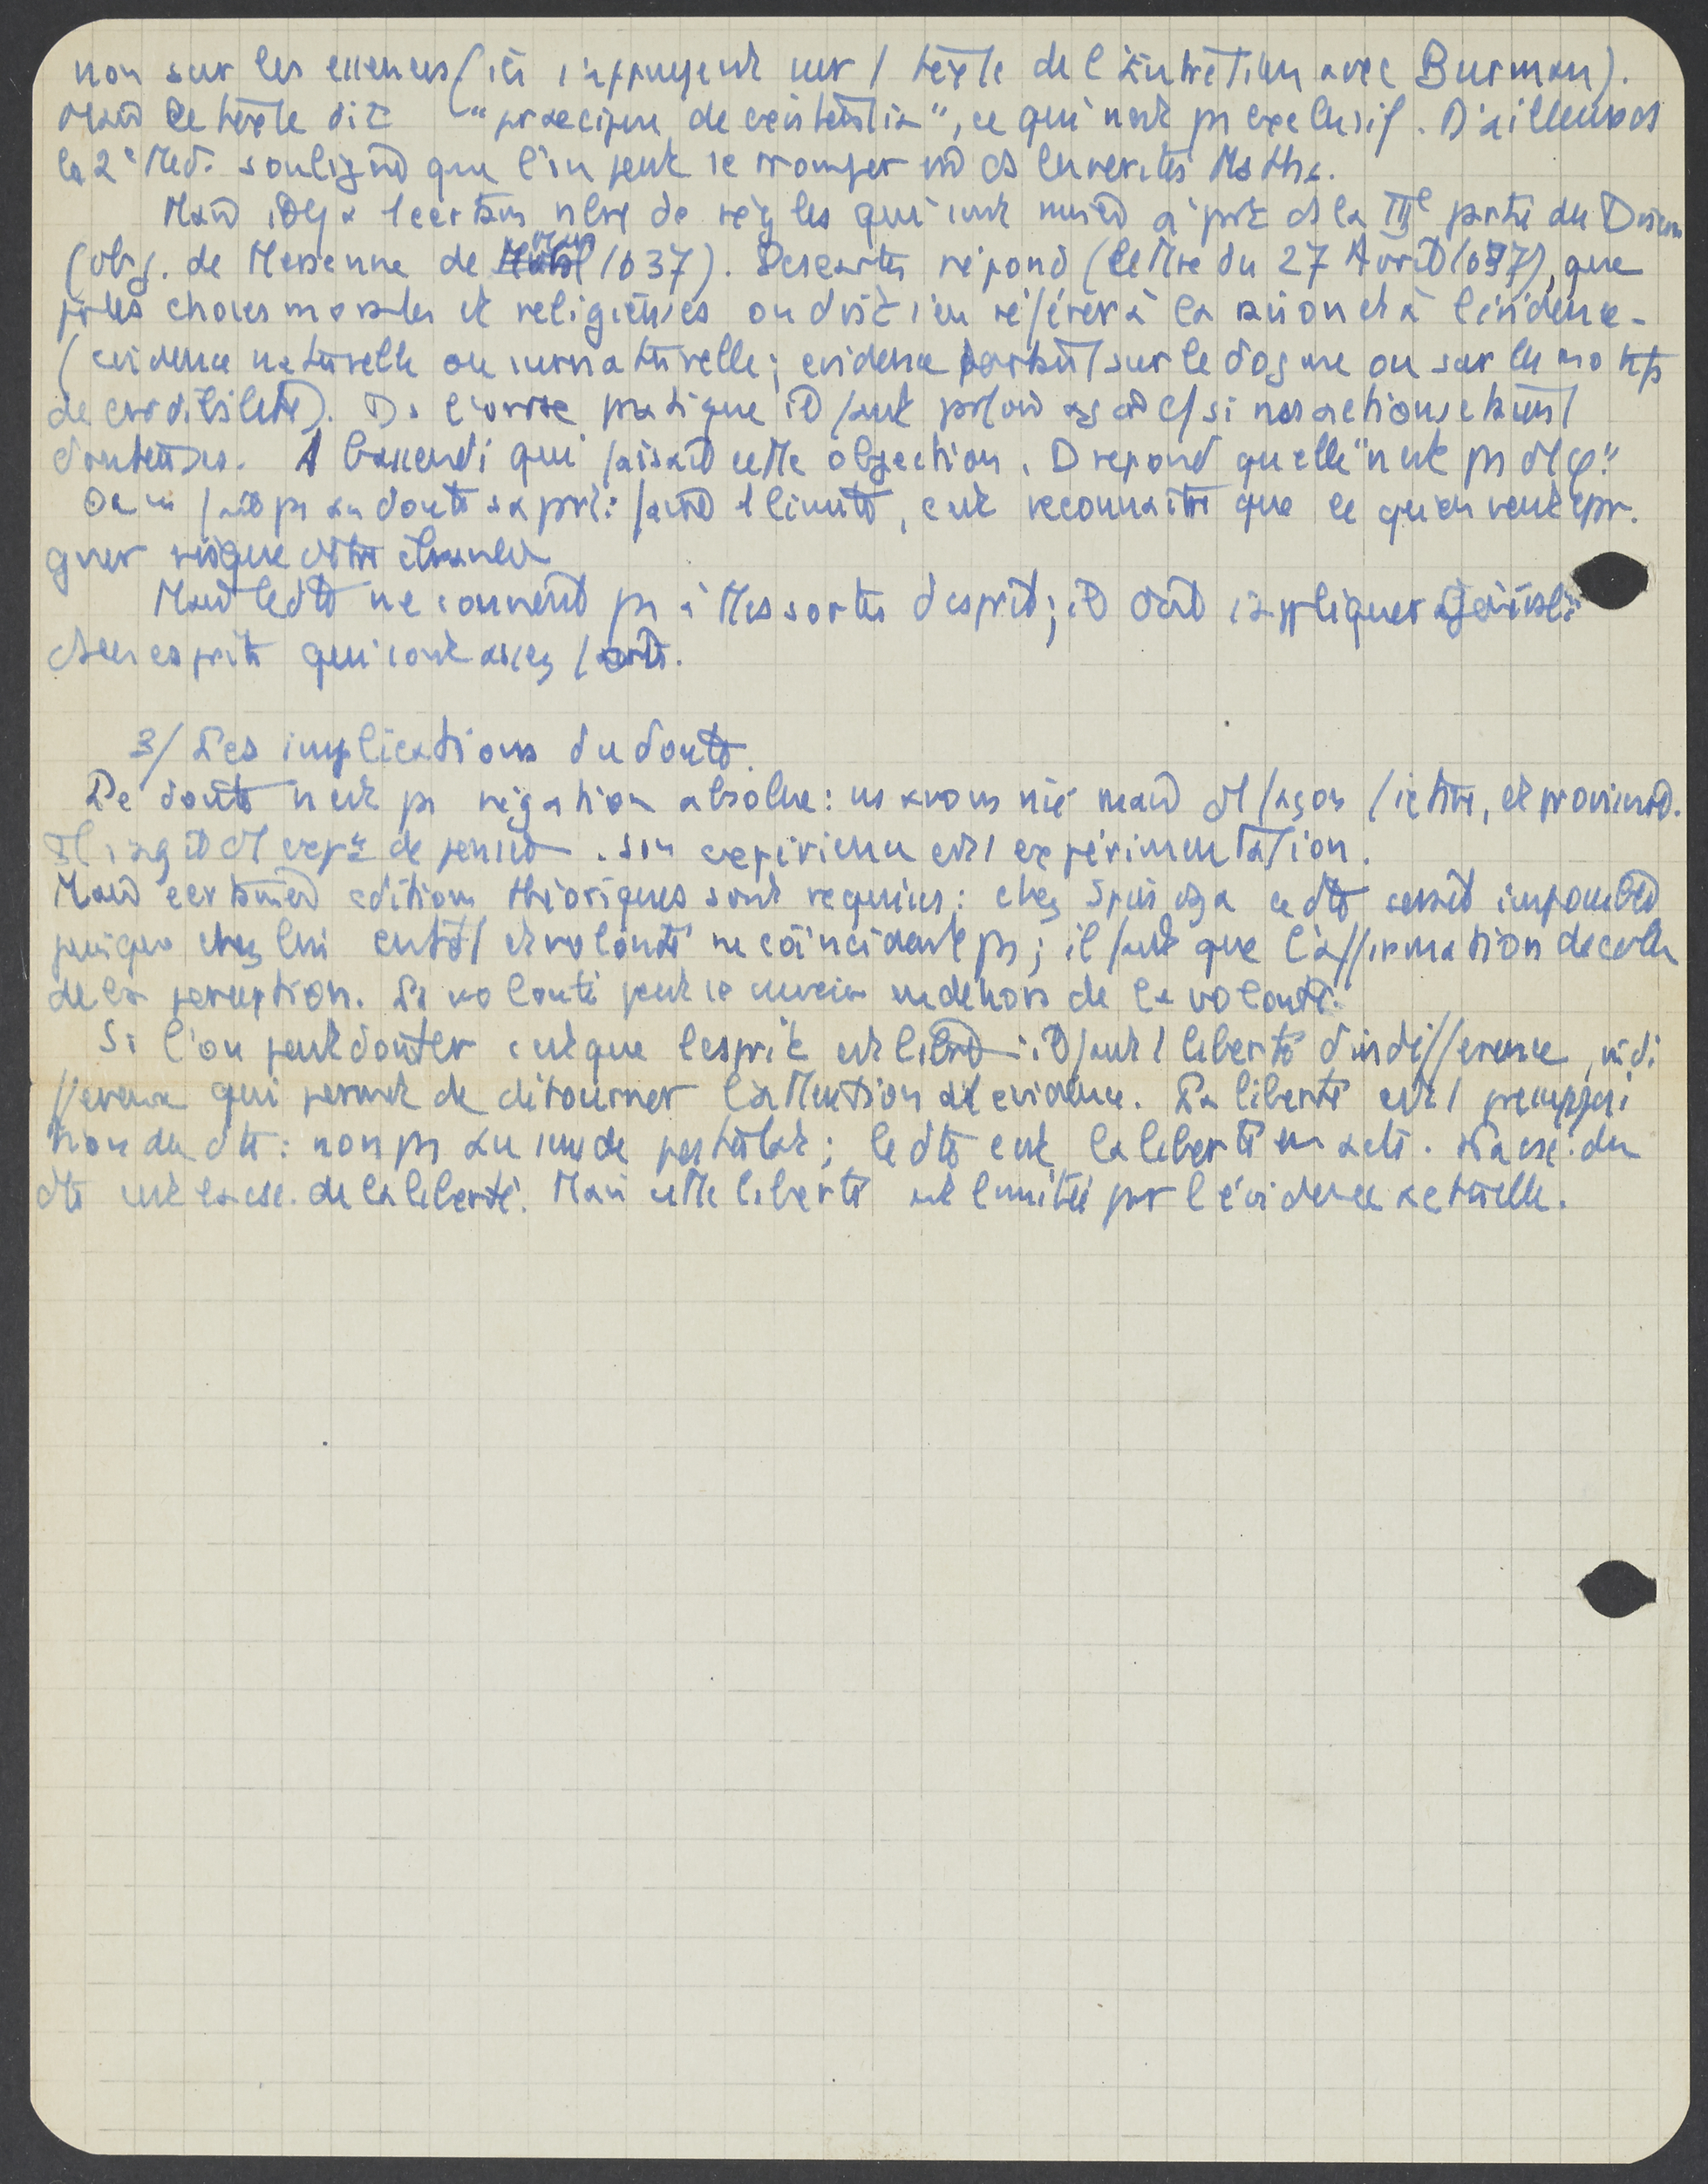 non sur les essences (ici s'appuyent sur 1 texte de l'Entretien avec Burman).
Mais le texte dit "praecipue de existentia", ce qui n'est ps exclusif. D'ailleurs ds
la 2e Med. souligne que l'on peut se tromper ds les verités Maths.
Mais il y a 1 certain nbre de règles qui sont mises à part ds la IIIe partie du Discours
(obj. de Mersenne de 1637). Descartes répond (lettre du 27 Avril 1637), que
pr les choses morales et religieuses on doit s'en référer à la raison et à l'évidence -
(evidence naturelle ou surnaturelle; evidence portant sur le dogme ou sur les motifs
de crédibilité). Ds l'ordre pratique il faut parfois agir si nos actions étaient
douteuses. A Gassendi qui faisait cette objection, D repond qu'elle "n'est ps φ."
On ne fait ps au doute sa part: faire 1 limite, c'est reconnaitre que ce qu'on veut epar-
gner risque d'être ébranlé
Mais le dte ne convient ps à ttes sortes d'esprit; il doit s'appliquer
des esprits qui sont assez forts.
3/ Les implications du doute.
Le doute n'est ps négation absolue: ns avons nié mais façon fictive, et provisoire.
Il s'agit de pensée. Son expérience est 1 expérimentation.
Mais certaines cditions théoriques sont requises: chez Spinoza ce dte serait impossible
puisque chez lui entdt et volonté ne coïncident ps; il faut que l'affirmation decolle
de la perception. La volonté peut se mouvoir en dehors de la volonté.
Si l'on peut douter c'est que l'esprit est libre: il faut 1 liberté d'indifférence, indi
fference qui permet de détourner l'attention evidence. La liberté est 1 presupposi
tion du dte: non ps au sens de postulat; le dte c'est la liberté en acte. du
dte est de la liberté. Mais cette liberté est limitée par l'évidence actuelle.